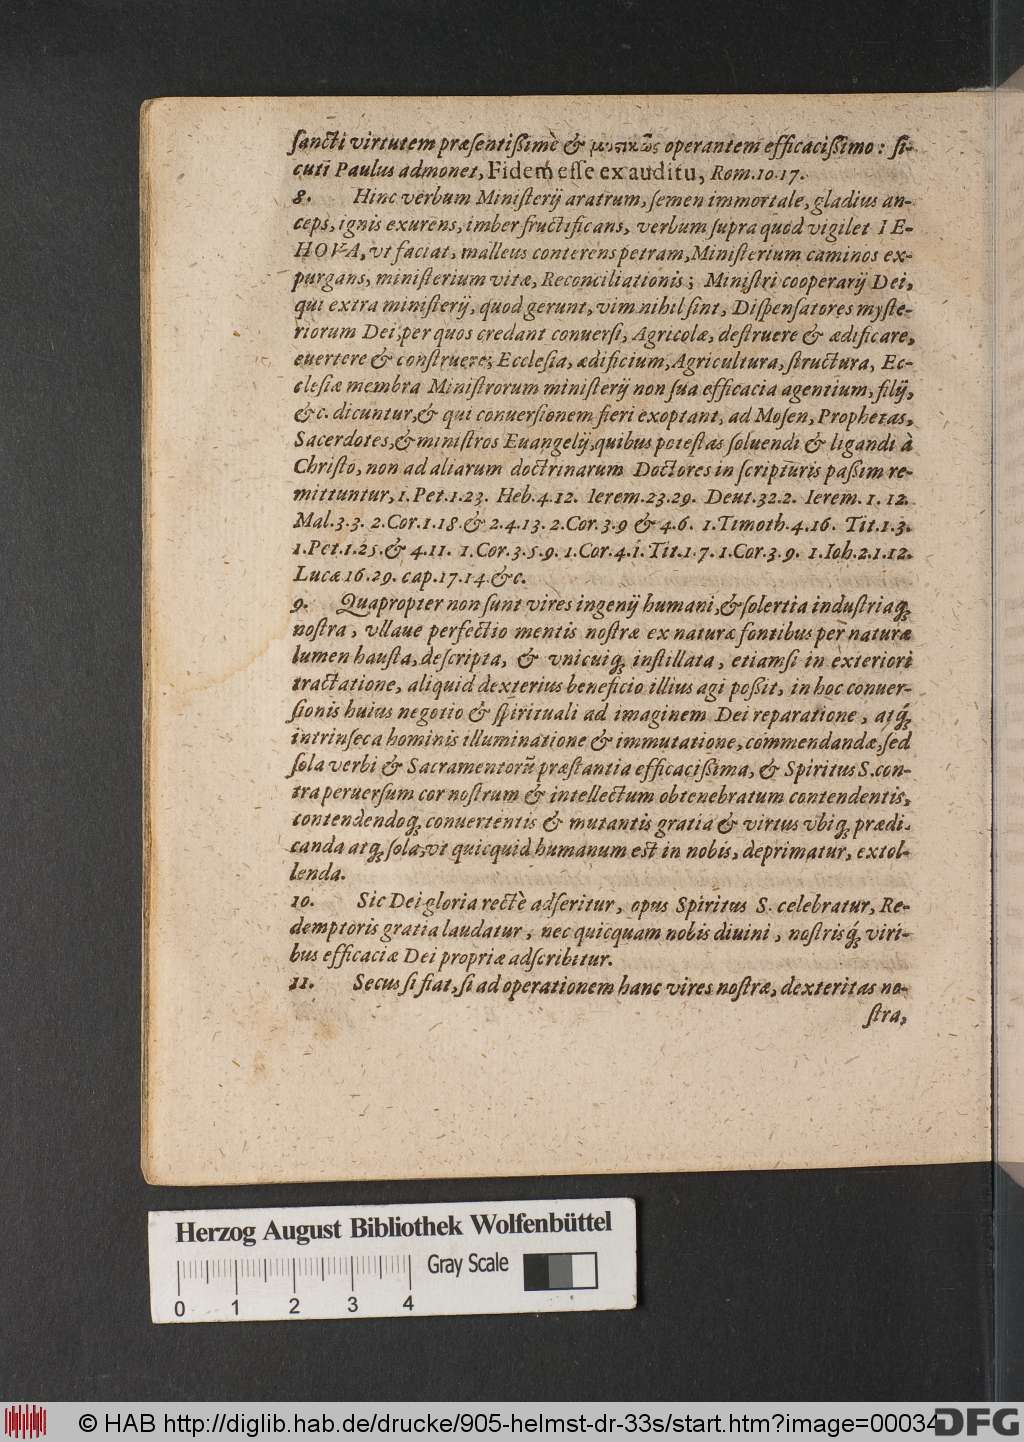 ſancti virtutem præſentiſsimè & μυςικῶς operantem efficaciſsimo: ſi-
cuti Paulus admonet, Fidem eſſe ex auditu, Rom.10.17.
8. Hinc verbum Miniſterij aratrum, ſemen immortale, gladius an-
ceps, ignis exurens, imber fructificans, verbum ſupra quod vigilet IE-
HOVA, vt faciat, malleus conterens petram, Miniſterium caminos ex-
purgans, miniſterium vitæ, Reconciliationis; Miniſtri cooperarij Dei,
qui extra miniſterij, quod gerunt, vim nihil ſint, Diſpenſatores myſte-
riorum Dei, per quos credant conuerſi, Agricolæ, deſtruere & ædificare,
euertere & conſtruere; Eccleſia, ædificium, Agricultura, ſtructura, Ec-
cleſiæ membra Miniſtrorum miniſterij non ſua efficacia agentium, filij,
&c. dicuntur, & qui conuerſionem fieri exoptant, ad Moſen, Prophetas,
Sacerdotes, & miniſtros Euangelij, quibus poteſtas ſoluendi & ligandi à
Chriſto, non ad aliarum doctrinarum Doctores in ſcripturis paſsim re-
mittuntur, 1.Pet.1.23. Heb.4.12. Ierem.23.29. Deut.32.2. Ierem.1.12.
Mal.3.3. 2.Cor.1.18. & 2.4.13. 2.Cor.3.9 & 4.6. 1.Timoth.4.16. Tit.1.3.
1.Pet.1.25. & 4.11. 1.Cor.3.5.9. 1.Cor.4.1. Tit.1.7. 1.Cor.3.9. 1.Ioh.2.1.12.
Lucæ 16.29. cap.17.14. &c.
9. Quapropter non ſunt vires ingenij humani, & ſolertia induſtriaq́;
noſtra, vllaue perfectio mentis noſtræ ex naturæ fontibus per naturæ
lumen hauſta, deſcripta, & vnicuiq; inſtillata, etiamſi in exteriori
tractatione, aliquid dexterius beneficio illius agi poſsit, in hoc conuer-
ſionis huius negotio & ſpirituali ad imaginem Dei reparatione, atq́;
intrinſeca hominis illuminatione & immutatione, commendandæ, ſed
ſola verbi & Sacramentorũ præſtantia efficaciſsima, & Spiritus S. con-
tra peruerſum cor noſtrum & intellectum obtenebratum contendentis,
contendendoq; conuertentis & mutantis gratia & virtus vbiq; prædi-
canda atq; ſola, vt quicquid humanum est in nobis, deprimatur, extol-
lenda.
10. Sic Dei gloria rectè adſeritur, opus Spiritus S. celebratur, Re-
demptoris gratia laudatur, nec quicquam nobis diuini, noſtrisq́; viri-
bus efficaciæ Dei propriæ adſcribitur.
11. Secus ſi fiat, ſi ad operationem hanc vires noſtræ, dexteritas no-
ſtra,
Herzog August Bibliothek Wolfenbüttel
Gray Scale
0 1 2 3 4
© HAB http://diglib.hab.de/drucke/905-helmst-dr-33s/start.htm?image=00034
DFG